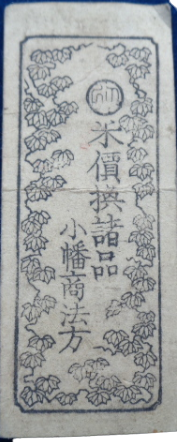 米價換諸品
小幡商法方